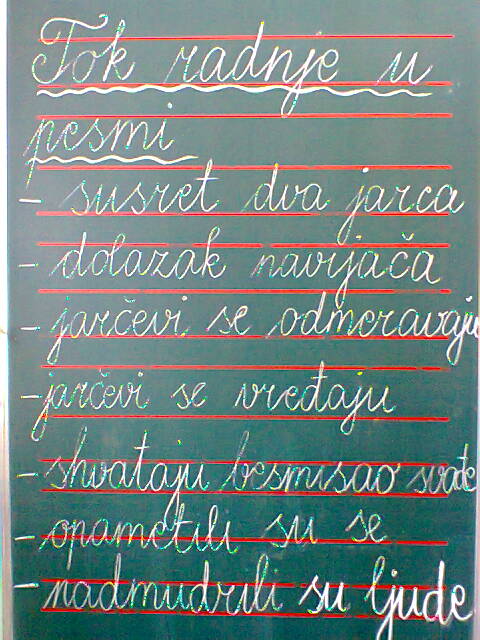 Tok radnje u
pesmi
- susret dva jarca
- dolazak navijača
- jarčevi se odmeravaju
- jarčevi se vređaju
- shvataju besmisao svađe
- opametili su se
- nadmudrili su ljude